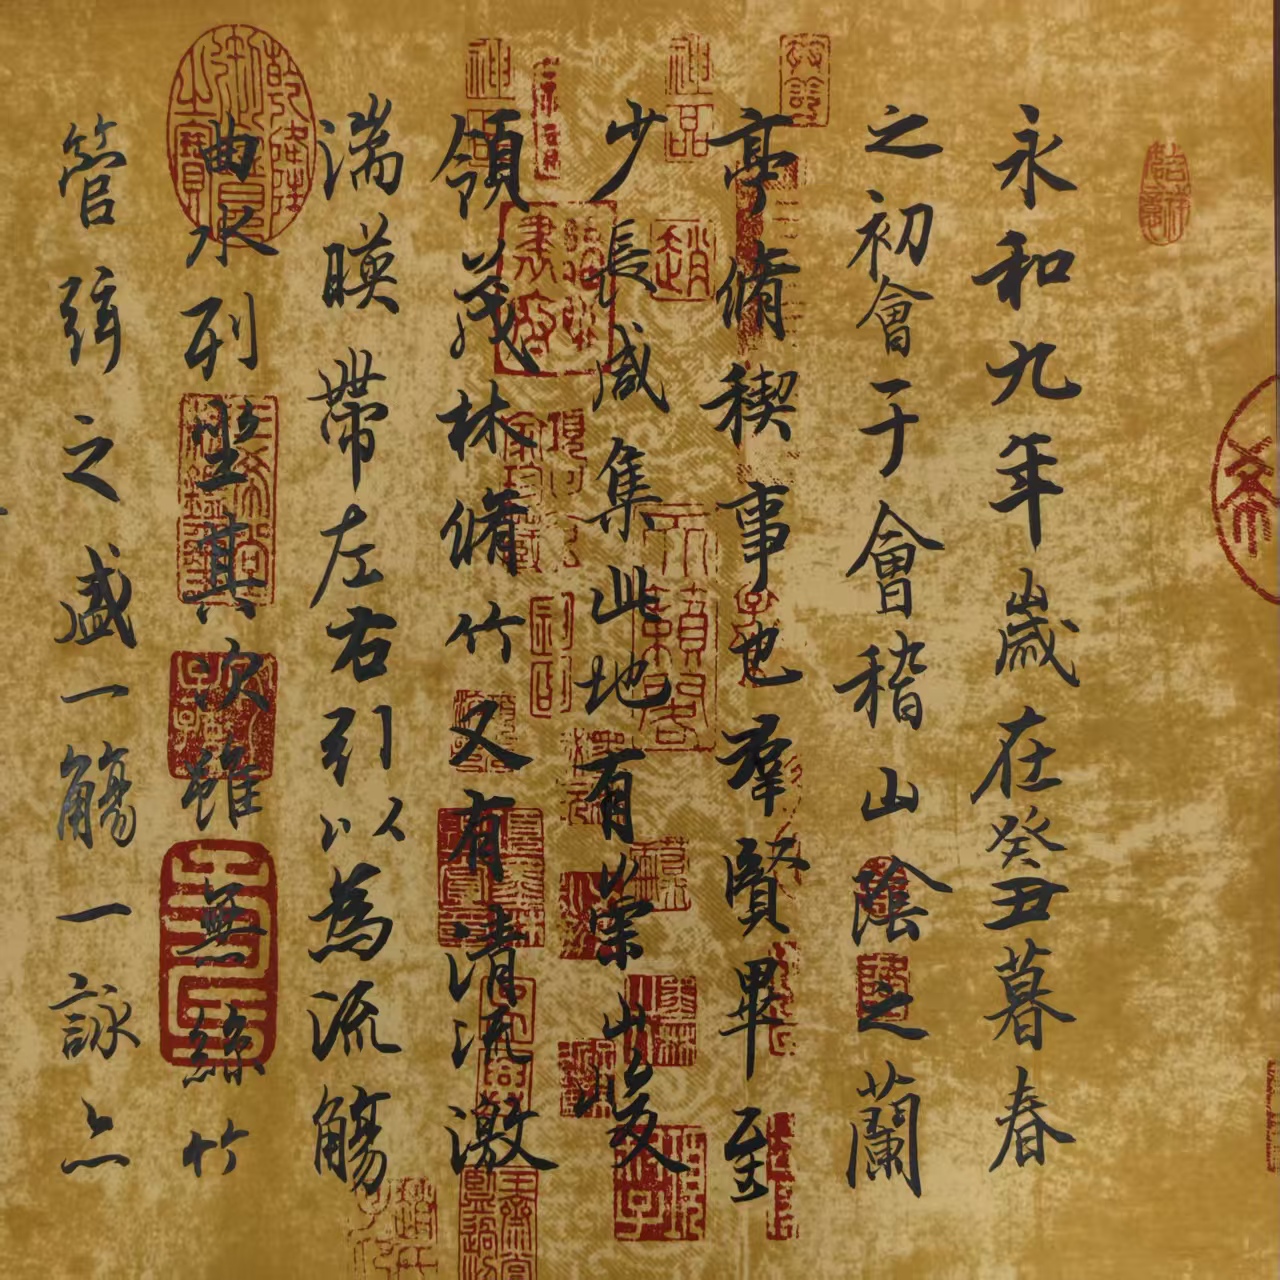 永和九年歲在癸丑暮春
之初會于會稽山陰之蘭
亭脩稧事也羣賢畢至
少長咸集此地有崇山峻
領茂林脩竹又有清流激
湍暎帶左右引以為流觴
曲水列坐其次雖無絲竹
管弦之盛一觴一詠亦